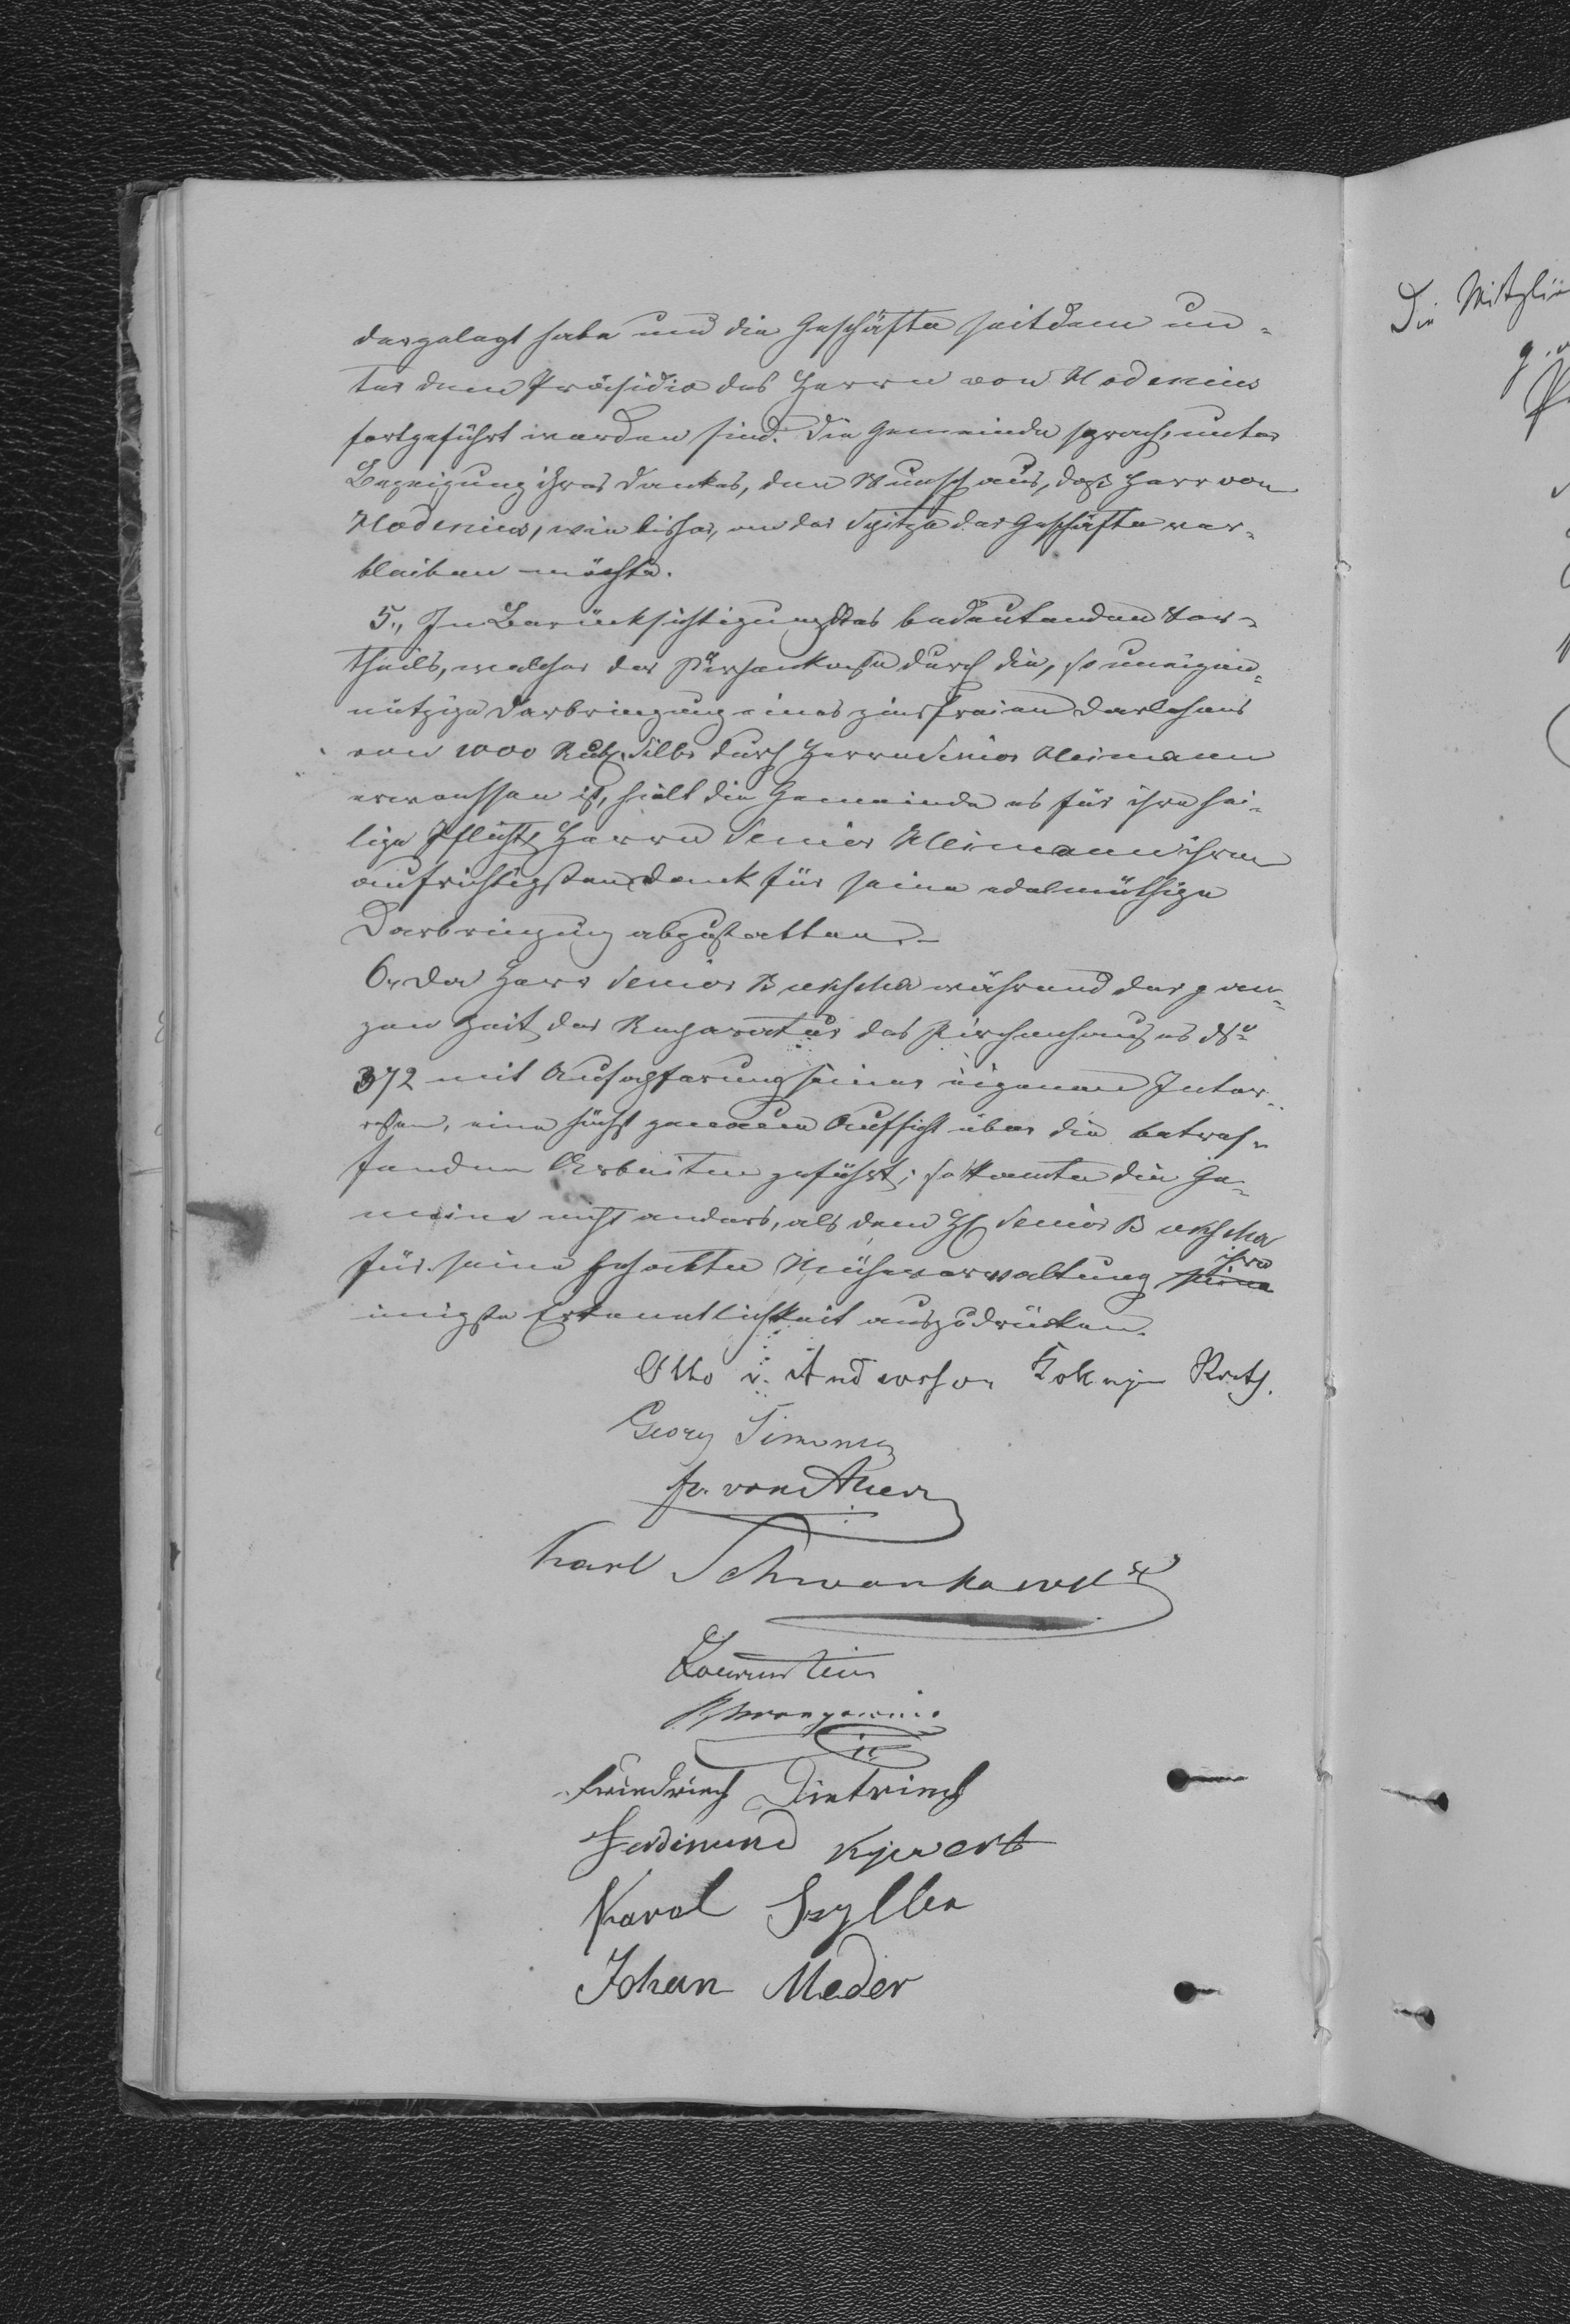 dergelegt habe und die Geschäfte seitdem un-
ter dem Präsidio des Herrn von Hodenius
fortgeführt worden sind. Die Gemeinde sprach, unter
Bezeigung ihres Dankes, den Wunsch aus, daß Herr von
Hodenius, wie bisher, an der Spitze der Geschäfte ver-
bleiben möchte.
5., In Berücksichtigung des bedeutenden Vor-
theils, welcher der Kirchenkasse durch die, so uneigen-
nützige Darbringung eines zinsfreien Darlehens
von 1000 Rub. Silber durch Herrn Senior Kleimann
erwachsen ist, hielt die Gemeinde es für ihre hei-
lige Pflicht Herrn Senior Kleimann ihren
aufrichtigsten Dank für seine edelmüthige
Darbringung abzustatten.-
6., Da Herr Senior Bukscha während der gan-
zen Zeit der Reparatur des Kirchenhauses No
372 mit Aufopferung seiner eigenen Inter-
essen, eine höchst genaue Aufsicht über die betref-
fenden Arbeiten geführt; so konnte die Ge-
meine nicht anders, als dem H. Senior Bukscha
für seine gehabte Müheverwaltung seine ihre
innigste Erkenntlichkeit auszudrücken.
Otto v. Anderson
Georg Timmer
fr. von Auer
Karl Schwankowski
Loewenstein
Friedrich Dietrich
Ferdinand Kyvert
Karol Szyller
Johan Meder
Die Mitglie